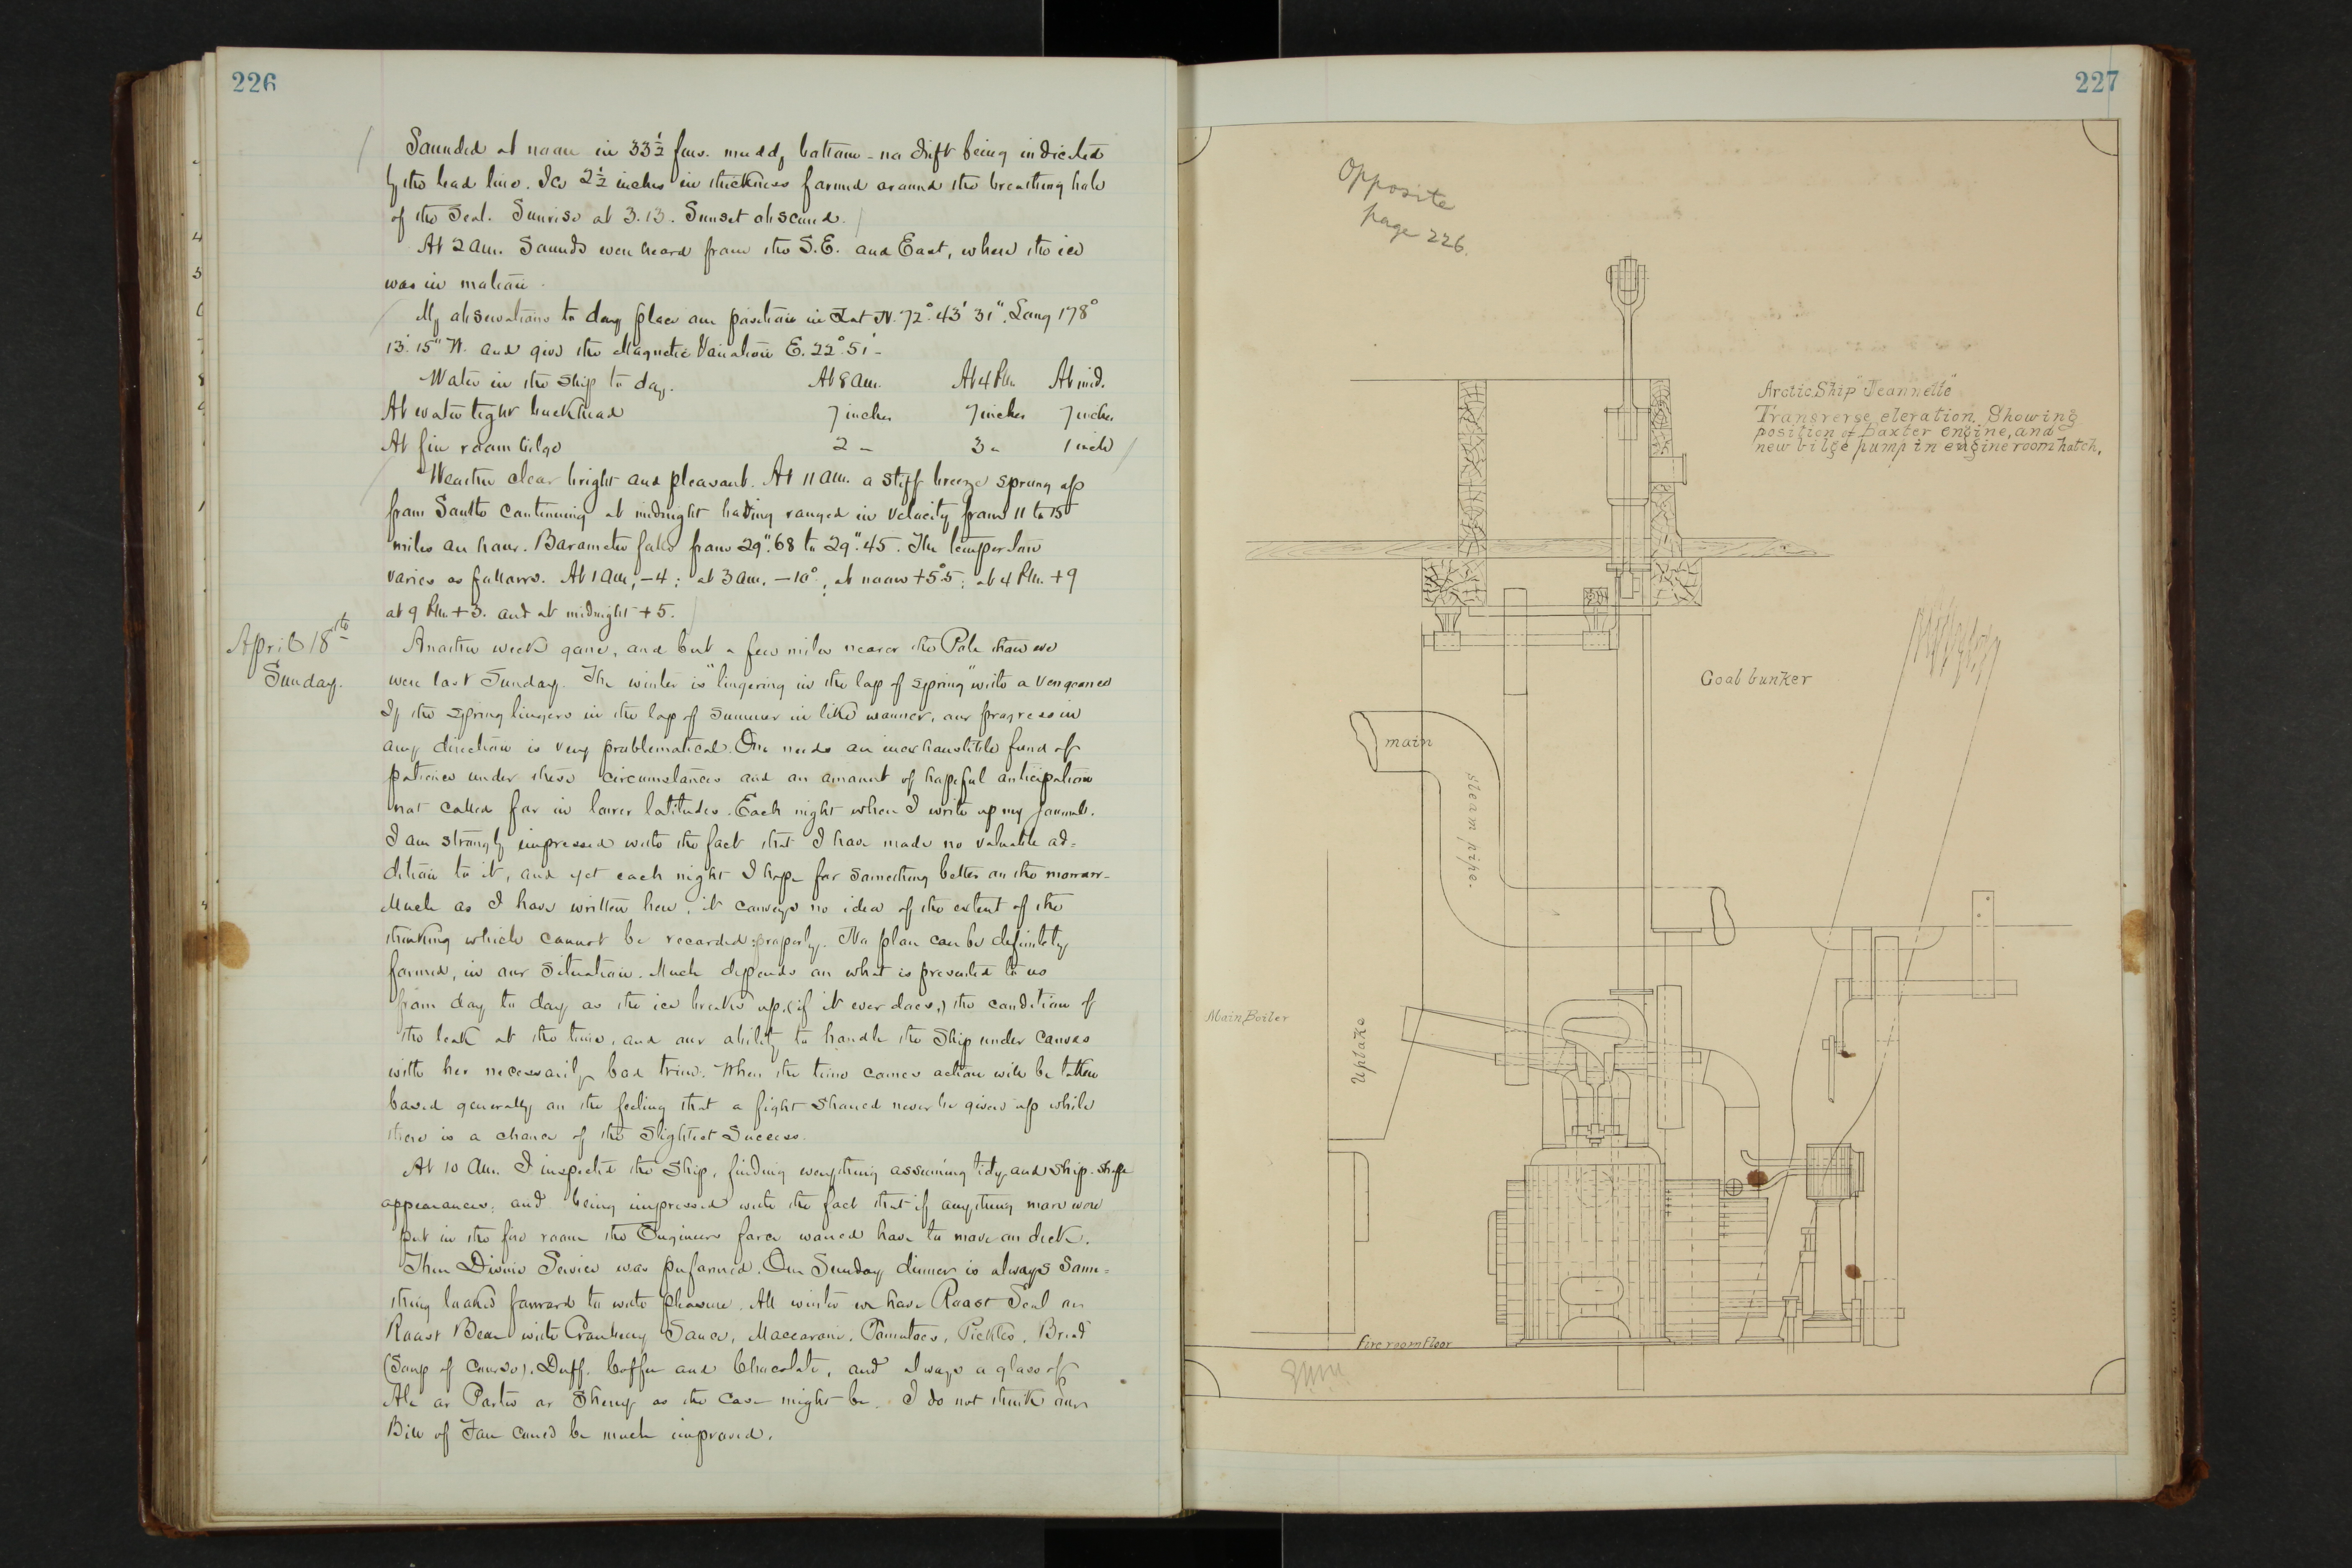 226
Sounded at noon in 33½ fms. muddy bottom - no drift being indicated
by the lead line. Ice 2½ inches in thickness formed around the breathing hole
of the Seal. Sunrise at 3.13. Sunset obscured.
At 2 am. Sounds were heard from the S.E. and East, where the ice
was in motion.
My observations to day place our position in Lat N. 72° 43' 31". Long 178°
13' 15" W. and give the Magnetic Variation E. 22° 51' -
Water in the ship to day. At 8 am. At 4 P.M. At mid.
At water tight bulkhead 7 inches 7 inches 7 inches
At fire room bilge 2 " 3 " 1 inch
Weather clear bright and pleasant. At 11 am. a stiff breeze sprung up
from South continuing at midnight having ranged in velocity from 11 to 15
miles an hour. Barometer falls from 29".68 to 29".45. The temperature
varies as follows. At 1 am, -4; at 3 am, -10°; at noon +5°.5; at 4 P.M. +9
at 9 P.M. +3. and at midnight +5.
April 18th
Sunday.
Another week gone, and but a few miles nearer the Pole than we
were last Sunday. The winter is "lingering in the lap of spring" with a vengeance
If the spring lingers in the lap of summer in like manner, our progress in
any direction is very problematical. One needs an inexhaustible fund of
patience under these circumstances and an amount of hopeful anticipation
not called for in lower latitudes. Each night when I write up my journal.
I am strongly impressed with the fact that I have made no valuable ad=
dition to it, and yet each night I hope for something better on the morrow-
Much as I have written here, it conveys no idea of the extent of the
thinking which cannot be recorded properly. No plan can be definitely
formed, in our situation. Much depends on what is presented to us
from day to day as the ice breaks up, (if it ever does,) the condition of
the leak at the time, and our ability to handle the Ship under canvas
with her necessarily bad trim. When the time comes action will be taken
based generally on the feeling that a fight should never be given up while
there is a chance of the slightest success.
At 10 am. I inspected the Ship, finding everything assuming tidy and ship-shape
appearances, and being impressed with the fact that if anything more were
put in the fire room the Engineers force would have to move on deck.
Then Divine Service was performed. Our Sunday dinner is always Some=
thing looked forward to with pleasure. All winter we have Roast Seal or
Roast Bear with Cranberry Sauce, Maccaroni, Tomatoes, Pickles, Bread
(Soup of course), Duff, Coffee and Chocolate, and always a glass of
Ale or Porter or Sherry as the case might be. I do not think our
Bill of Fare could be much improved.
227
Opposite
page 226.
Arctic Ship "Jeannette"
Transverse elevation, Showing
position of Baxter engine, and
new bilge pump in engine room hatch.
Coal bunker
main
steam pipe.
Main Boiler
Uptake
Fire room floor